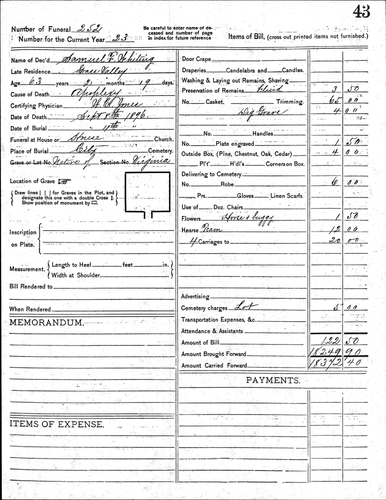 43
Number of Funeral 252
Number for the Current Year 23
Be careful to enter name of deceased and number of page in index for future reference
Items of Bill, (cross out printed items not furnished.)
Name of Dec'd Samuel F. Whiting
Late Residence Valley
Age 63 years 2 months 19 days
Cause of Death Apoplexy
Certifying Physician W. E. Jones
Date of Death Sept 8th 1896
Date of Burial 11th "
Funeral at House or House Church.
Place of Burial City Cemetery.
Grave or Lot No. Native of Section No. Virginia
Location of Grave
Draw lines [ ] for Graves in the Plot, and designate this one with a double Cross
Show position of monument by
Inscription on Plate.
Measurement, Length to Heel feet in.
Width at Shoulder
Bill Rendered to
When Rendered
MEMORANDUM.
ITEMS OF EXPENSE.
Door Crape
Draperies Candelabra and Candles.
Washing & Laying out Remains, Shaving
Preservation of Remains Fluid 3 50
No. Casket, Trimming. 65 00
Dig Grave 4 00
No. Handles
No. Plate engraved 1 50
Outside Box, (Pine, Chestnut, Oak, Cedar) 4 00
No. Corners on Box
Delivering to Cemetery
No. Robe 6 00
Prs. Gloves Linen Scarfs
Use of Doz. Chairs
Flowers Horse & buggy 1 50
Hearse 12 00
4 Carriages to 20 00
Advertising
Cemetery charges Lot 5 00
Transportation Expenses, &c.
Attendance & Assistants
Amount of Bill 122 50
Amount Brought Forward 18249 90
Amount Carried Forward 18372 40
PAYMENTS.